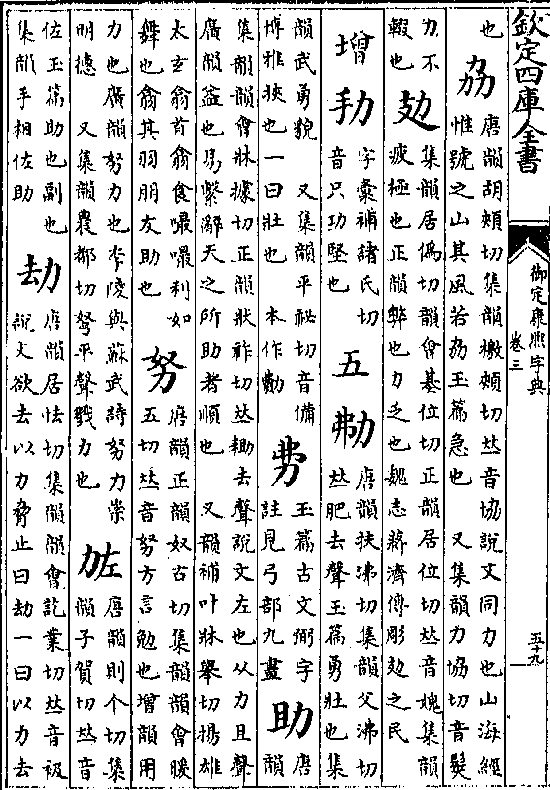 欽定四庫全書
御定康熙字典
卷三
五十九
也
劦
唐韻胡頰切集韻檄頰切𠀤音協說文同力也山海經
惟號之山其風若劦玉篇急也 又集韻力協切音
力不
輟也
攰
集韻居僞切韻會基位切正韻居位切𠀤音媿集韻
疲極也正韻弊也力乏也魏志蔣濟傳彫攰之民
增
劧
字彙補諸氏切
音只功堅也
五
唐韻扶沸切集韻父沸切
𠀤肥去聲玉篇勇壯也集
韻武勇貌 又集韻平祕切音備
博雅狹也一曰壯也 本作
玉篇古文弼字
註見弓部九畫
助
唐
韻
集韻韻會牀據切正韻狀祚切𠀤鋤去聲說文左也从力且聲
廣韻益也易繫辭天之所助者順也 又韻補叶牀舉切揚雄
太玄翕首翕食嘬嘬利如
舞也翕其羽朋友助也
努
唐韻正韻奴古切集韻韻會暖
五切𠀤音努方言勉也增韻用
力也廣韻努力也李陵與蘇武詩努力崇
明德 又集韻農都切弩平聲戮力也
㔫
唐韻則个切集
韻子賀切𠀤音
佐玉篇助也副也
集韻手相佐助
劫
唐韻居怯切集韻韻會訖業切𠀤音衱
說文欲去以力脅止曰劫一曰以力去